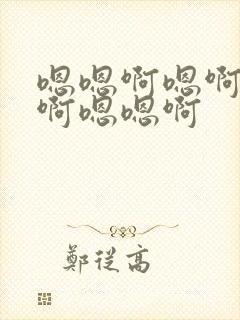 嗯嗯啊嗯啊
啊嗯嗯啊
鄭從高